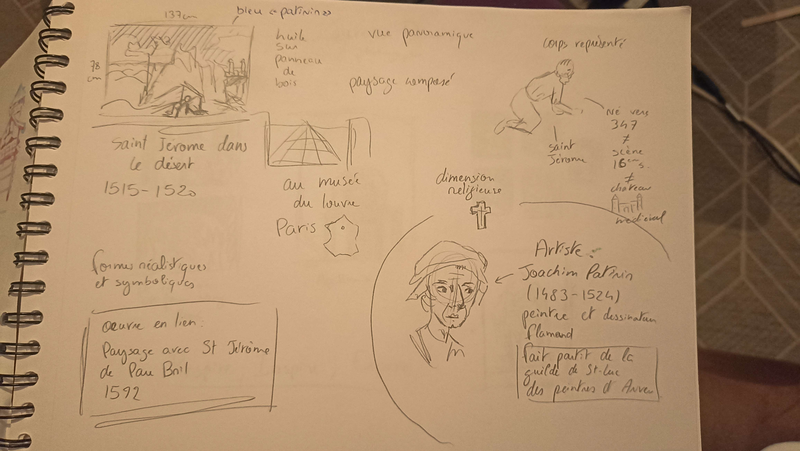 137cm
bleu « patinir »
78
cm
huile
sur
panneau
de
bois
vue panoramique
paysage composé
corps représenté
saint
Jérôme
Né vers
347
≠
scène
16ème s.
≠
château
médiéval
Saint Jérôme dans
le désert
1515-1520
au musée
du louvre
Paris
dimension
religieuse
formes réalistiques
et symboliques
œuvre en lien:
Paysage avec St Jérôme
de Pau Bril
1592
Artiste:
Joachim Patinir
(1483-1524)
peintre et dessinateur
flamand
fait partit de la
guilde de St-Luc
des peintres d'Anvers